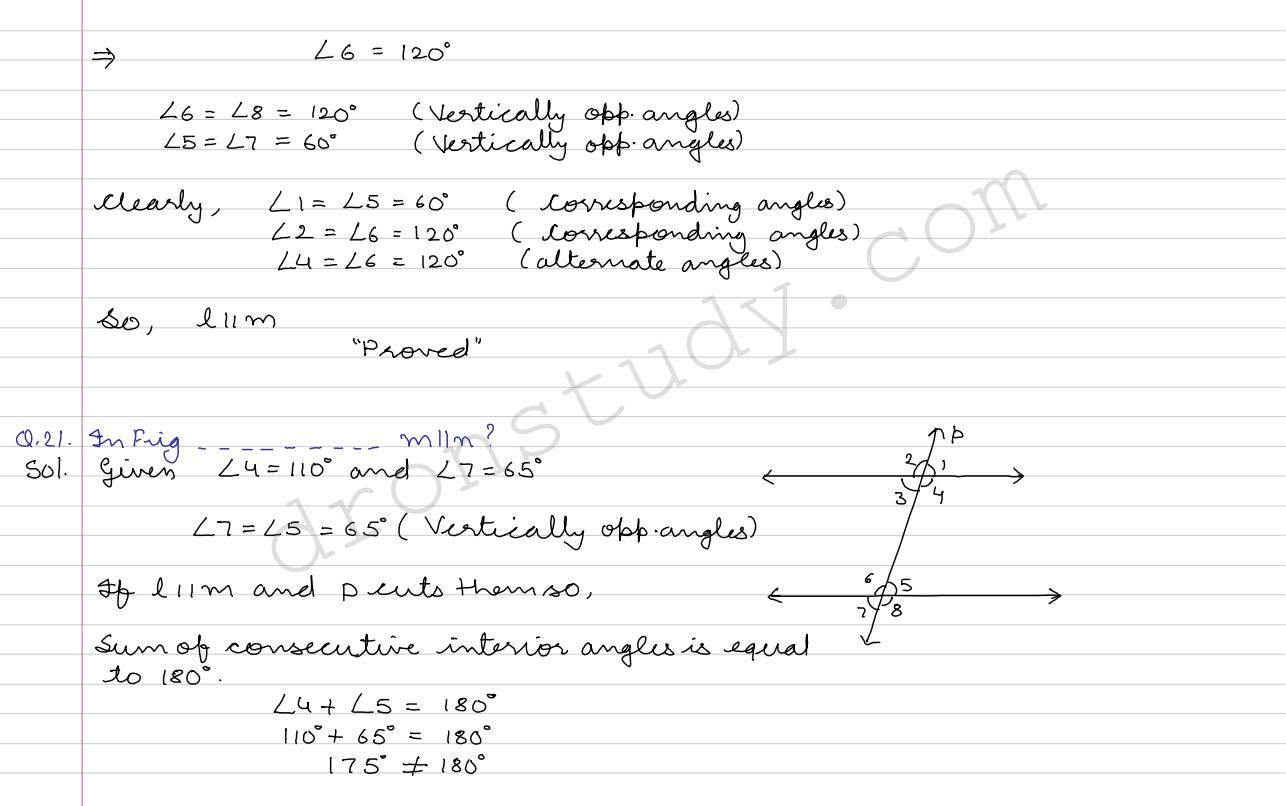 ⇒ ∠6 = 120°
∠6 = ∠8 = 120° (Vertically opp. angles)
∠5 = ∠7 = 60° (Vertically opp. angles)
Clearly, ∠1 = ∠5 = 60° (corresponding angles)
∠2 = ∠6 = 120° (corresponding angles)
∠4 = ∠6 = 120° (alternate angles)
So, l||m
"Proved"
Q.21. In Fig _ _ _ _ _ _ _ _ _ m||n?
Sol. Given ∠4 = 110° and ∠7 = 65°
∠7 = ∠5 = 65° (Vertically opp. angles)
If l||m and p cuts them so,
Sum of consecutive interior angles is equal
to 180°.
∠4 + ∠5 = 180°
110° + 65° = 180°
175° ≠ 180°
p
2 1
3 4
6 5
7 8
dronstudy.com